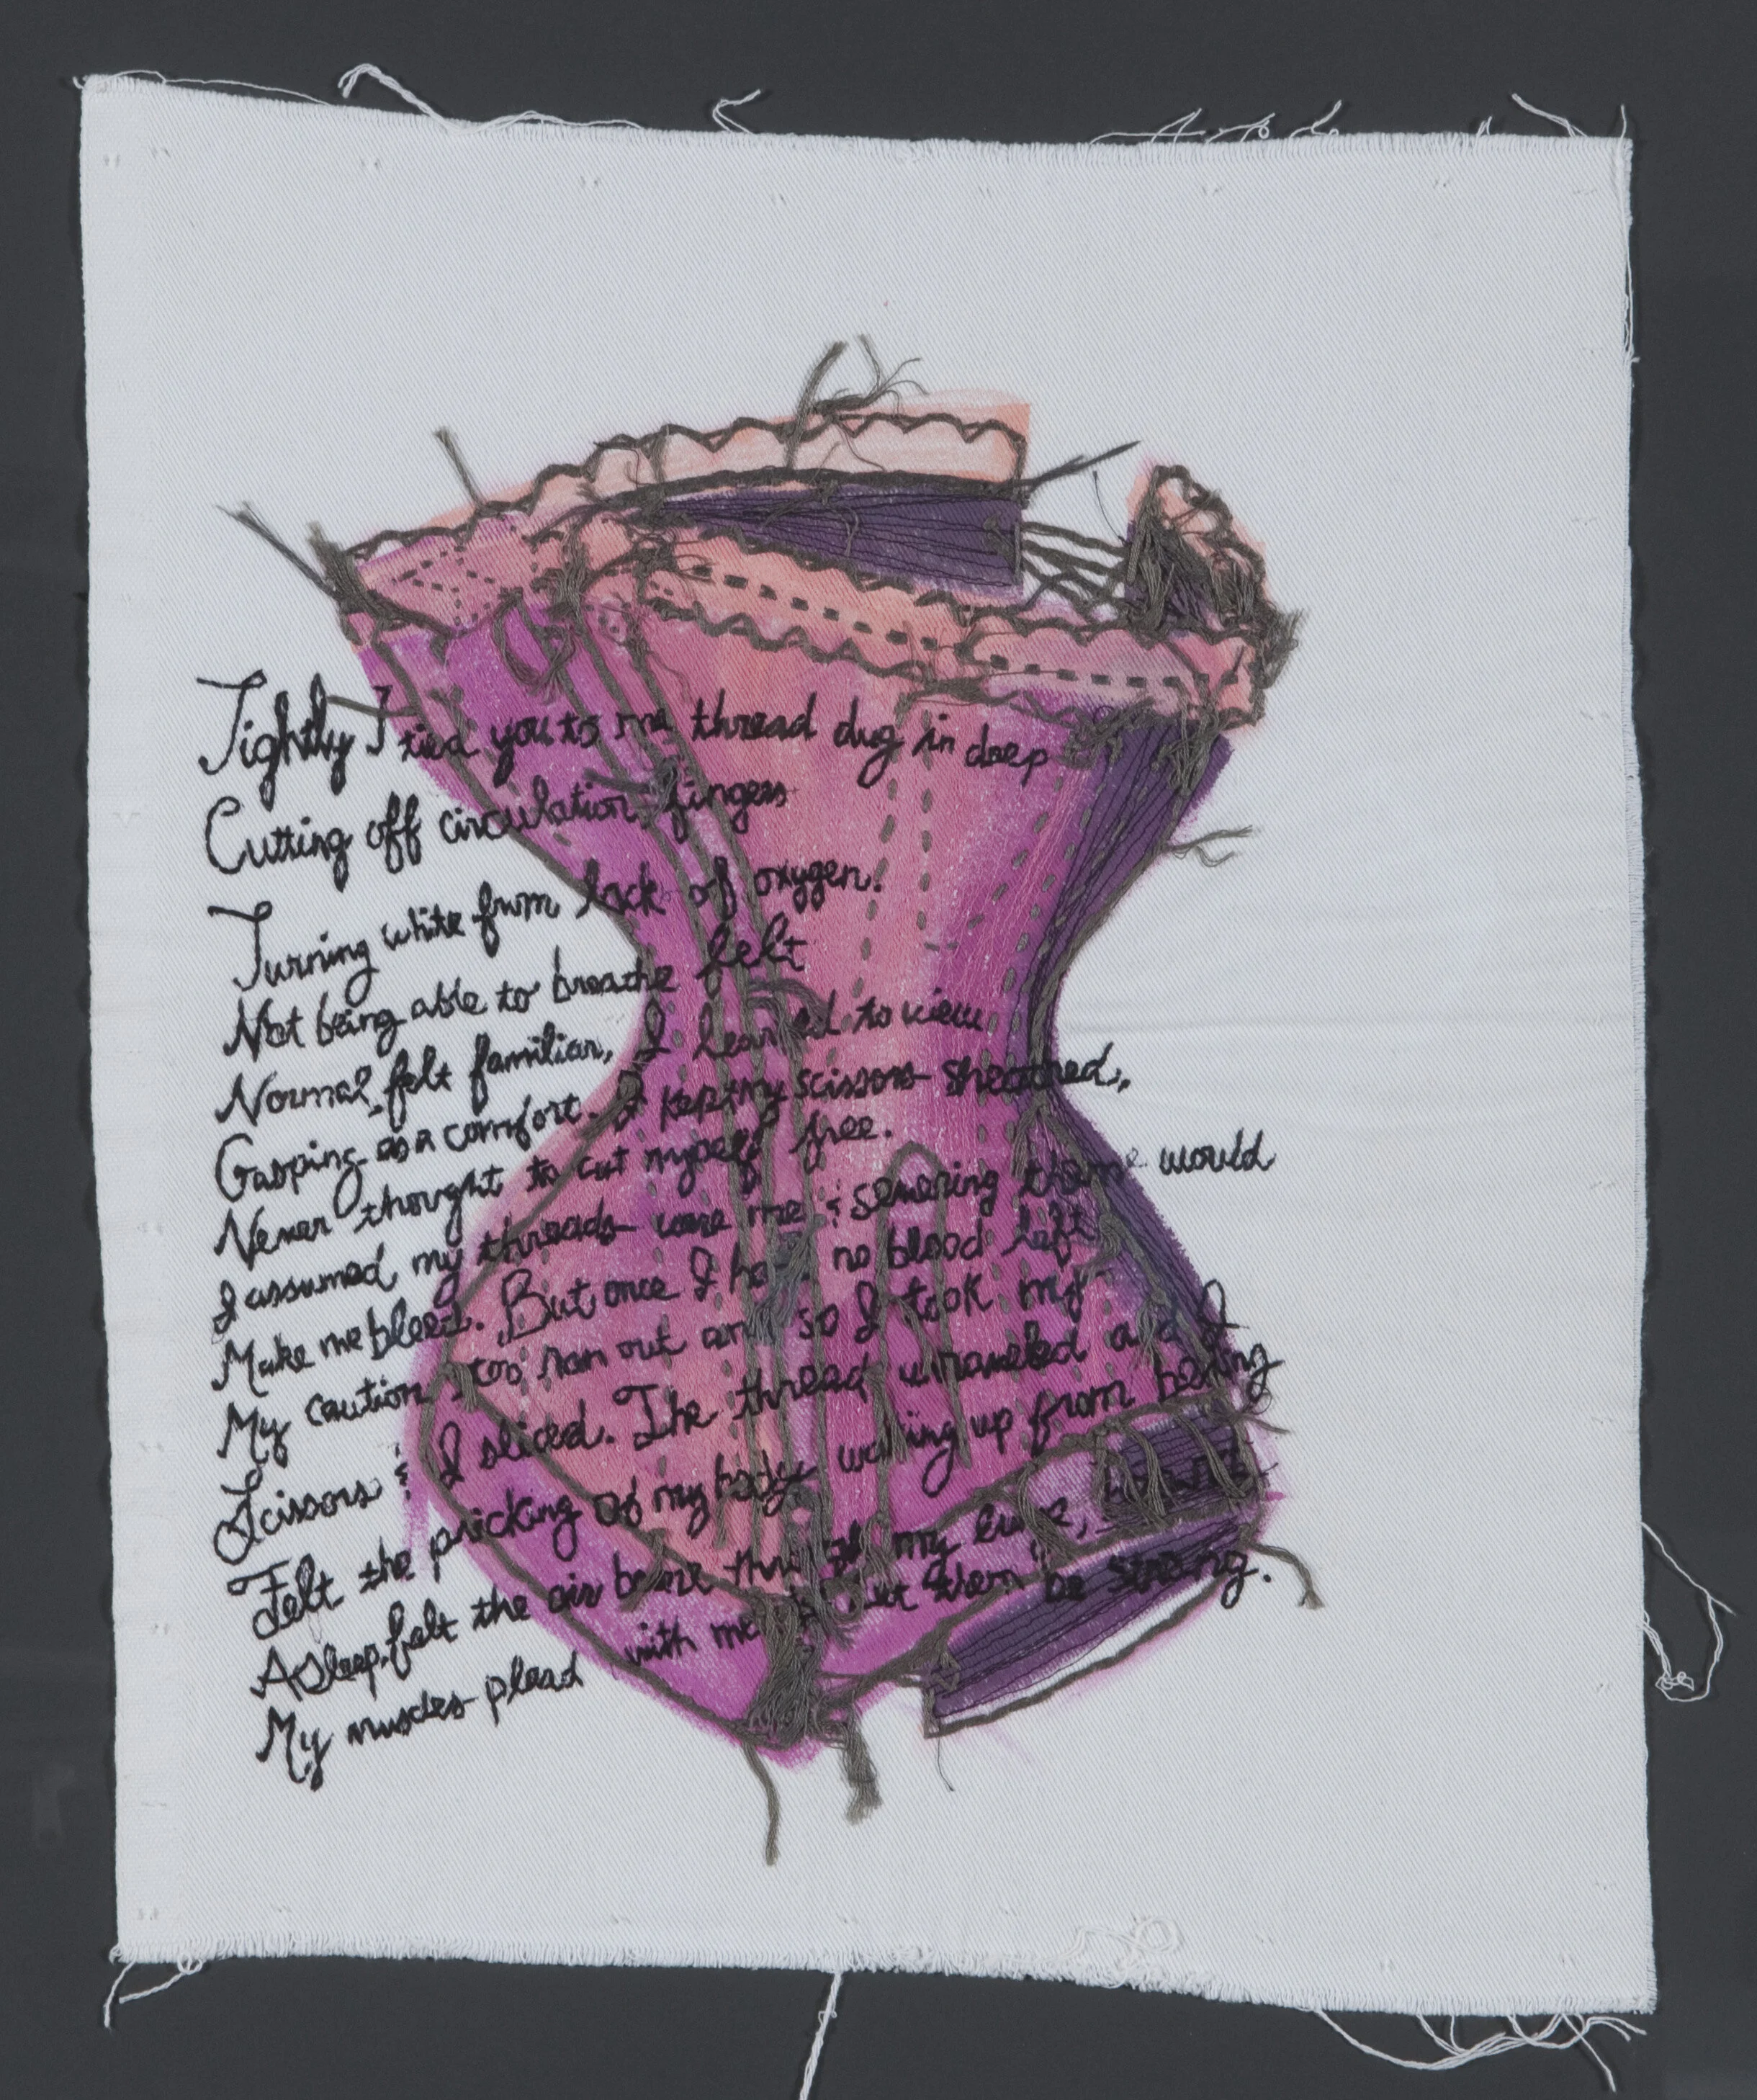 Tightly I tied you to me thread dug in deep
Cutting off circulation, fingers
Turning white from lack of oxygen.
Not being able to breathe felt
Normal, felt familiar, I learned to view
Gasping as a comfort. I kept my scissors sheathed,
Never thought to cut myself free.
I assumed my threads were me & severing them would
Make me bleed. But once I had no blood left
My caution too ran out and so I took my
Scissors & I sliced. The thread unraveled and I
Felt the pricking of my body waking up from being
Asleep, felt the air through my
My muscles plead with me to let them be strong.